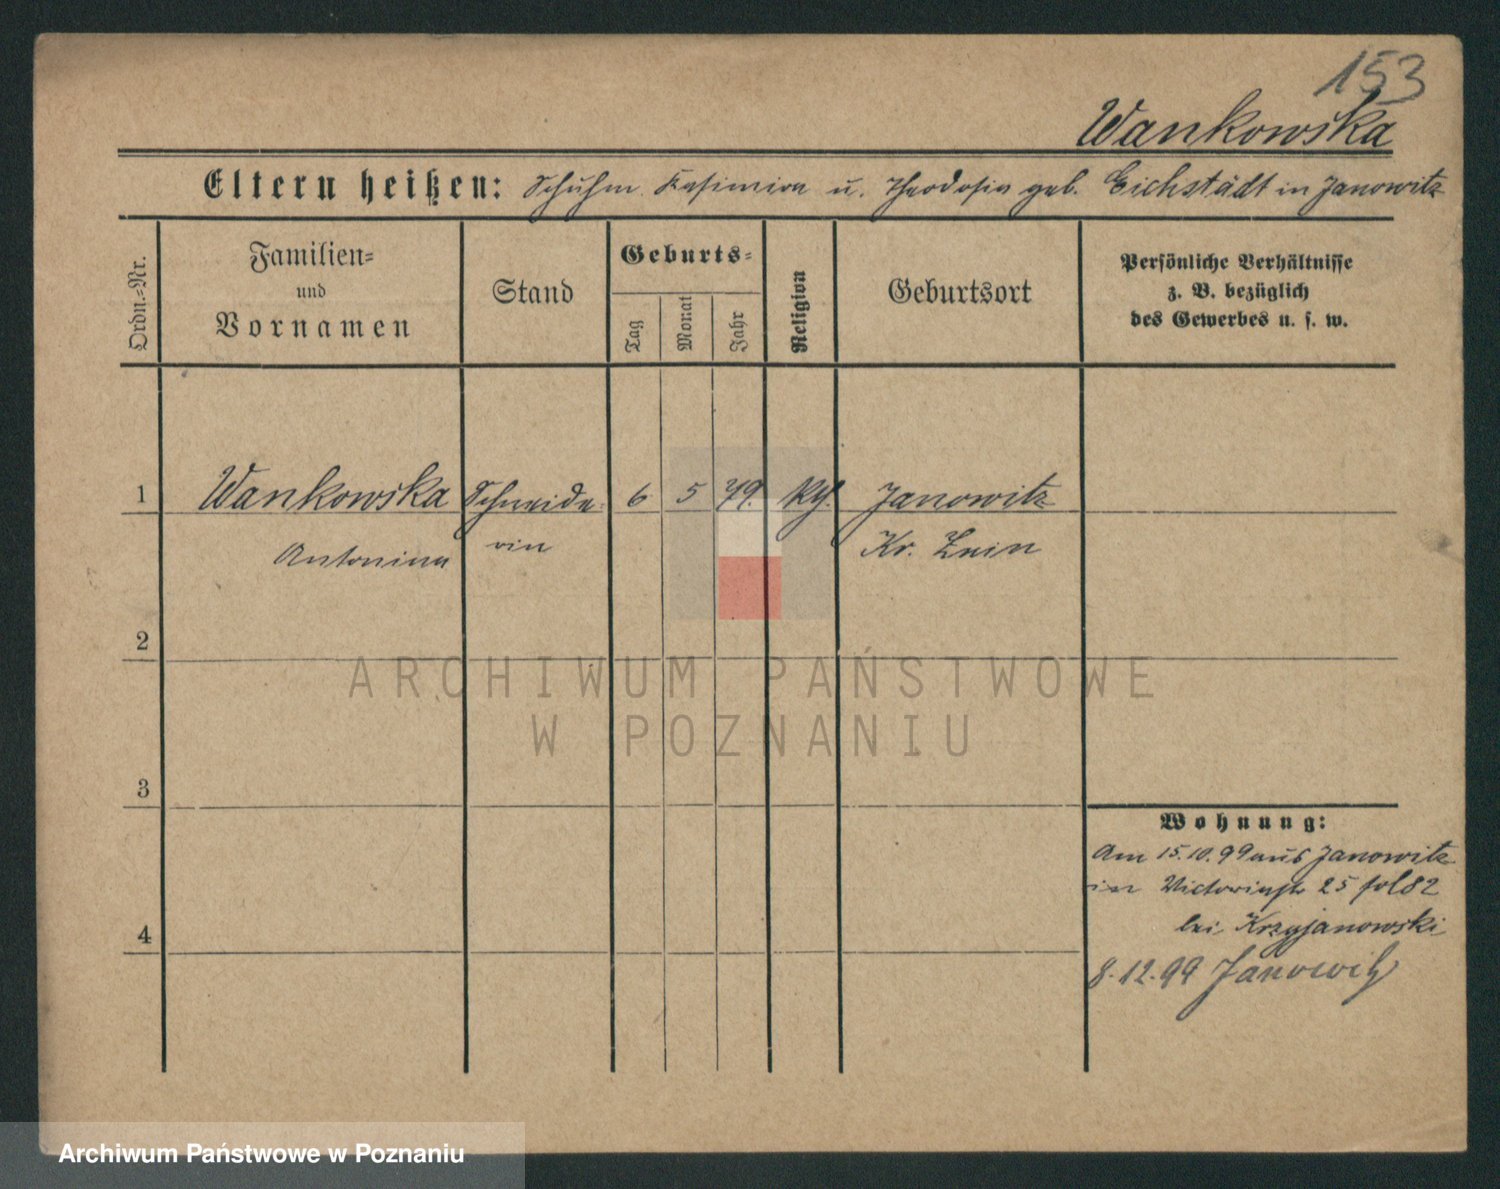 153
Wankowska
Eltern heißen: Schuhm. Kasimira u. Theodosia geb. Eichstädt in Janowitz
Ordn.-Nr.
Familien-
und
Vornamen
Stand
Geburts-
Tag
Monat
Jahr
Religion
Geburtsort
Persönliche Verhältnisse
z. B. bezüglich
des Gewerbes u. s. w.
1 Wankowska Schneide- 6 5 79. kth. Janowitz
Antonina rin Kr. Znin
2
ARCHIWUM PAŃSTWOWE
W POZNANIU
3
Wohnung:
Am 15.10.99 aus Janowitz
in Victoriastr 25 fol 82
bei Krzyjanowski
4
8.12.99 Janowitz
Archiwum Państwowe w Poznaniu